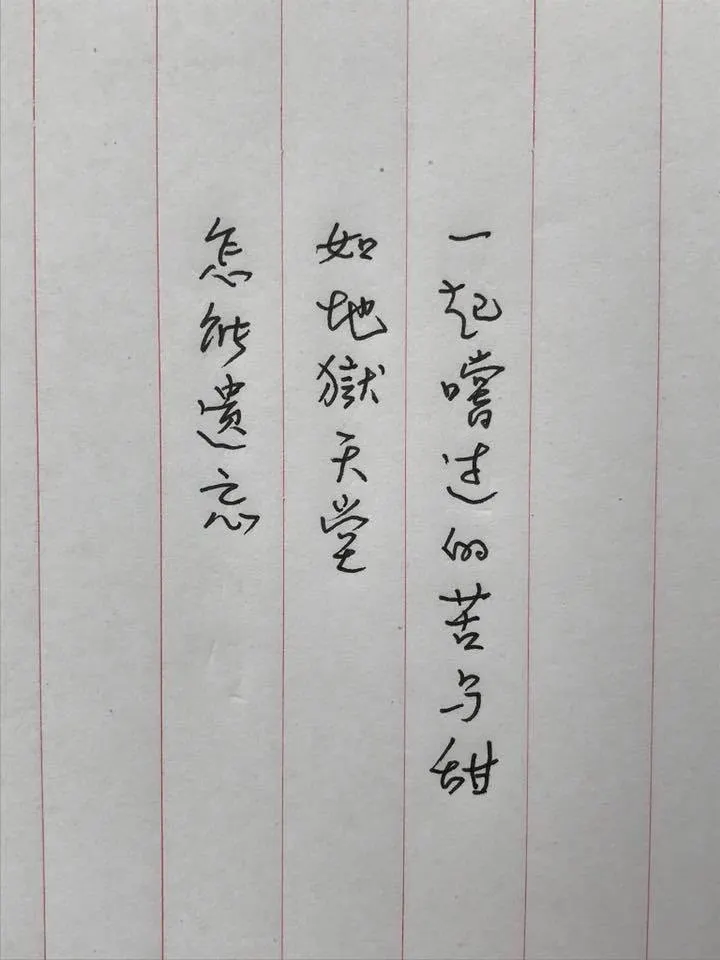 一起嚐过的苦与甜
如地獄天堂
怎能遺忘